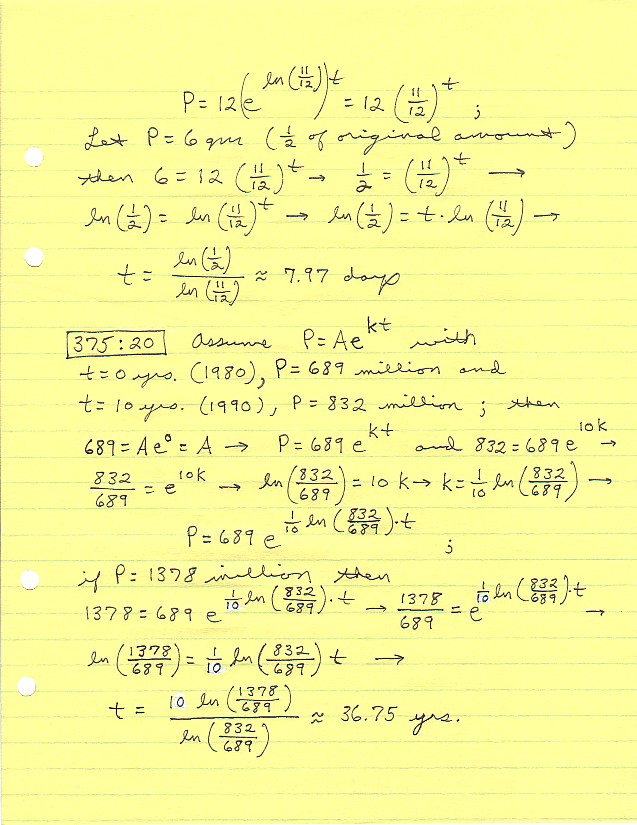 P = 12(e^{ln(11/12)})^t = 12(11/12)^t ;
Let P = 6 gm (1/2 of original amount)
then 6 = 12(11/12)^t → 1/2 = (11/12)^t →
ln(1/2) = ln(11/12)^t → ln(1/2) = t · ln(11/12) →
t = ln(1/2) / ln(11/12) ≈ 7.97 days
375:20 Assume P = Ae^{kt} with
t = 0 yrs. (1980), P = 689 million and
t = 10 yrs. (1990), P = 832 million ; then
689 = Ae^0 = A → P = 689 e^{kt} and 832 = 689 e^{10k} →
832/689 = e^{10k} → ln(832/689) = 10 k → k = 1/10 ln(832/689) →
P = 689 e^{1/10 ln(832/689) · t} ;
if P = 1378 million then
1378 = 689 e^{1/10 ln(832/689) · t} → 1378/689 = e^{1/10 ln(832/689) · t} →
ln(1378/689) = 1/10 ln(832/689) t →
t = 10 ln(1378/689) / ln(832/689) ≈ 36.75 yrs.